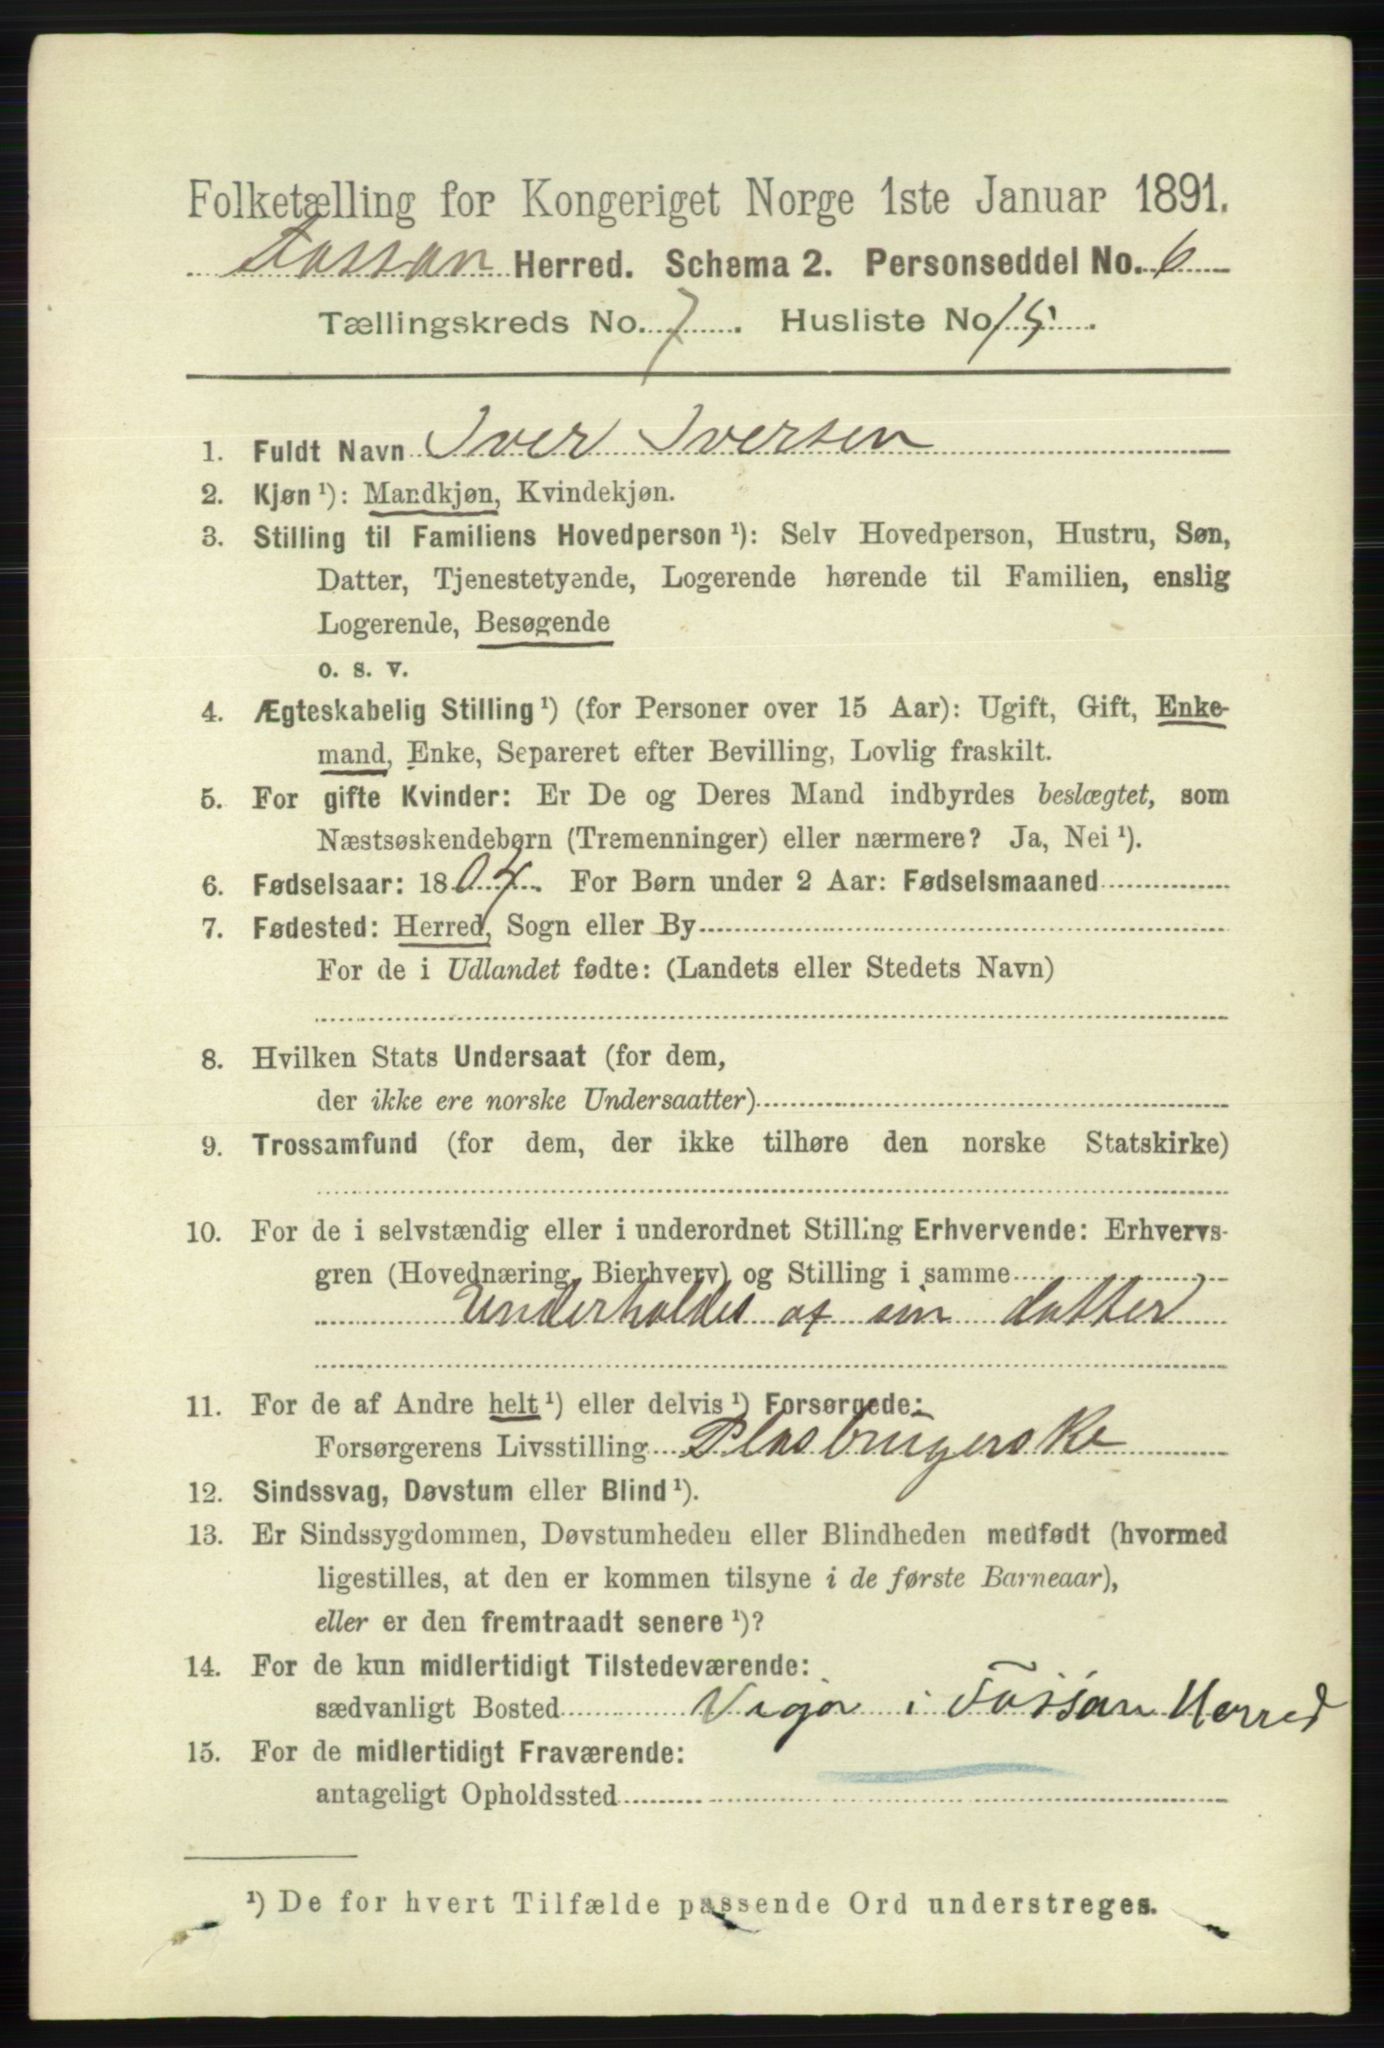 Folketælling for Kongeriget Norge 1ste Januar 1891.
Fossan Herred. Schema 2. Personseddel No. 6
Tællingskreds No. 7. Husliste No 15.
1. Fuldt Navn Iver Iversen
2. Kjøn ¹): Mandkjøn, Kvindekjøn.
3. Stilling til Familiens Hovedperson ¹): Selv Hovedperson, Hustru, Søn,
Datter, Tjenestetyende, Logerende hørende til Familien, enslig
Logerende, Besøgende
o. s. v.
4. Ægteskabelig Stilling ¹) (for Personer over 15 Aar): Ugift, Gift, Enke-
mand, Enke, Separeret efter Bevilling, Lovlig fraskilt.
5. For gifte Kvinder: Er De og Deres Mand indbyrdes beslægtet, som
Næstsøskendebørn (Tremenninger) eller nærmere? Ja, Nei ¹).
6. Fødselsaar: 1804. For Børn under 2 Aar: Fødselsmaaned
7. Fødested: Herred, Sogn eller By
For de i Udlandet fødte: (Landets eller Stedets Navn)
8. Hvilken Stats Undersaat (for dem,
der ikke ere norske Undersaatter)
9. Trossamfund (for dem, der ikke tilhøre den norske Statskirke)
10. For de i selvstændig eller i underordnet Stilling Erhvervende: Erhvervs-
gren (Hovednæring, Bierhverv) og Stilling i samme
Underholdes af sin datter
11. For de af Andre helt ¹) eller delvis ¹) Forsørgede:
Forsørgerens Livsstilling Plasbrugerske
12. Sindssvag, Døvstum eller Blind ¹).
13. Er Sindssygdommen, Døvstumheden eller Blindheden medfødt (hvormed
ligestilles, at den er kommen tilsyne i de første Barneaar),
eller er den fremtraadt senere ¹)?
14. For de kun midlertidigt Tilstedeværende:
sædvanligt Bosted i Fossan Herred
15. For de midlertidigt Fraværende:
antageligt Opholdssted
¹) De for hvert Tilfælde passende Ord understreges.